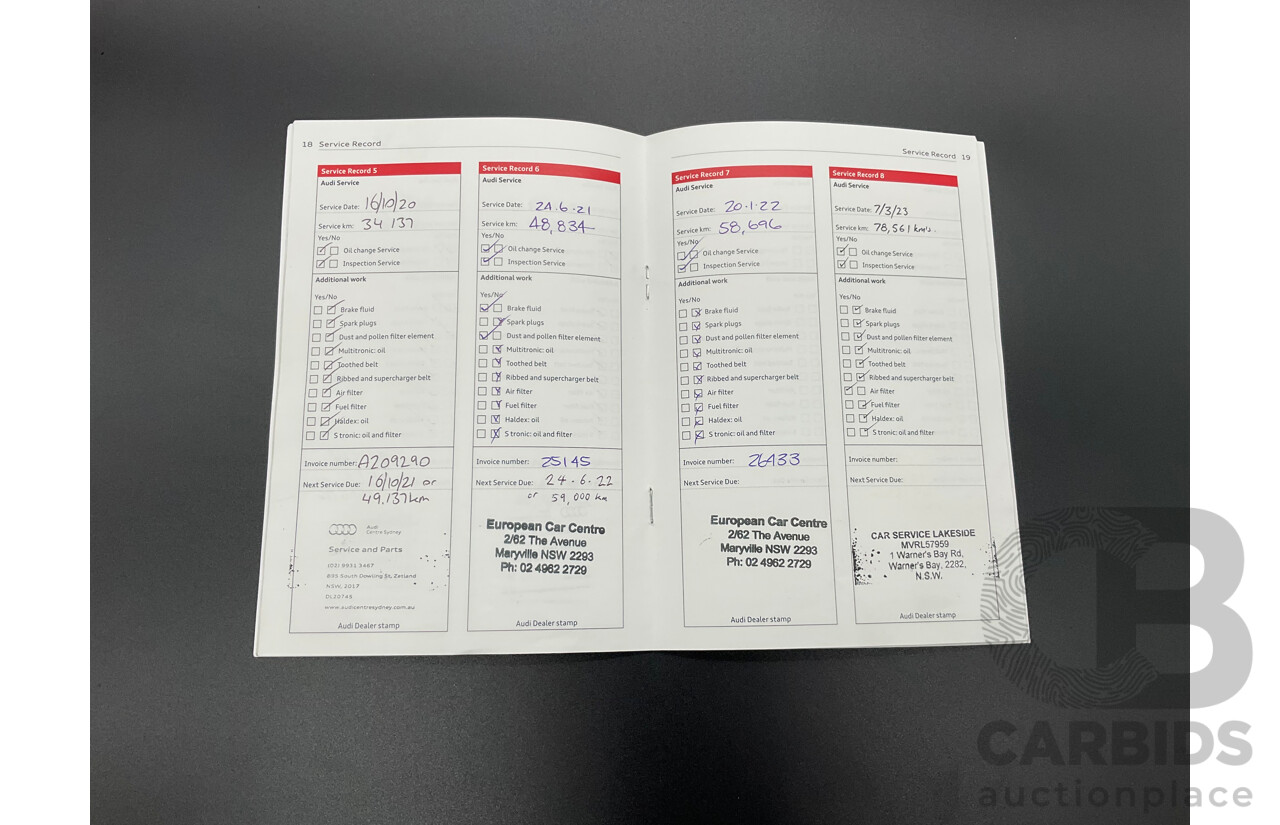 18 Service Record
Service Record 5
Audi Service
Service Date: 16/10/20
Service km: 34 137
Yes/No
Oil change Service
Inspection Service
Additional work
Yes/No
Brake fluid
Spark plugs
Dust and pollen filter element
Multitronic: oil
Toothed belt
Ribbed and supercharger belt
Air filter
Fuel filter
Haldex: oil
S tronic: oil and filter
Invoice number: A209290
Next Service Due: 16/10/21 or
49,137km
Audi
Centre Sydney
Service and Parts
(02) 9931 3467
895 South Dowling St, Zetland
NSW, 2017
www.audicentresydney.com.au
Audi Dealer stamp
Service Record 6
Audi Service
Service Date: 24.6.21
Service km: 48,834
Yes/No
Oil change Service
Inspection Service
Additional work
Yes/No
Brake fluid
Spark plugs
Dust and pollen filter element
Multitronic: oil
Toothed belt
Ribbed and supercharger belt
Air filter
Fuel filter
Haldex: oil
S tronic: oil and filter
Invoice number: 25145
Next Service Due: 24.6.22
or 59,000 km
European Car Centre
2/62 The Avenue
Maryville NSW 2293
Ph: 02 4962 2729
Audi Dealer stamp
Service Record 19
Service Record 7
Audi Service
Service Date: 20.1.22
Service km: 58,696
Yes/No
Oil change Service
Inspection Service
Additional work
Yes/No
Brake fluid
Spark plugs
Dust and pollen filter element
Multitronic: oil
Toothed belt
Ribbed and supercharger belt
Air filter
Fuel filter
Haldex: oil
S tronic: oil and filter
Invoice number: 26433
Next Service Due:
European Car Centre
2/62 The Avenue
Maryville NSW 2293
Ph: 02 4962 2729
Audi Dealer stamp
Service Record 8
Audi Service
Service Date: 7/3/23
Service km: 78,561 km's.
Yes/No
Oil change Service
Inspection Service
Additional work
Yes/No
Brake fluid
Spark plugs
Dust and pollen filter element
Multitronic: oil
Toothed belt
Ribbed and supercharger belt
Air filter
Fuel filter
Haldex: oil
S tronic: oil and filter
Invoice number:
Next Service Due:
CAR SERVICE LAKESIDE
MVRL57959
1 Warner's Bay Rd,
Warner's Bay, 2282,
N.S.W.
Audi Dealer stamp
CB
CARBIDS
auctionplace